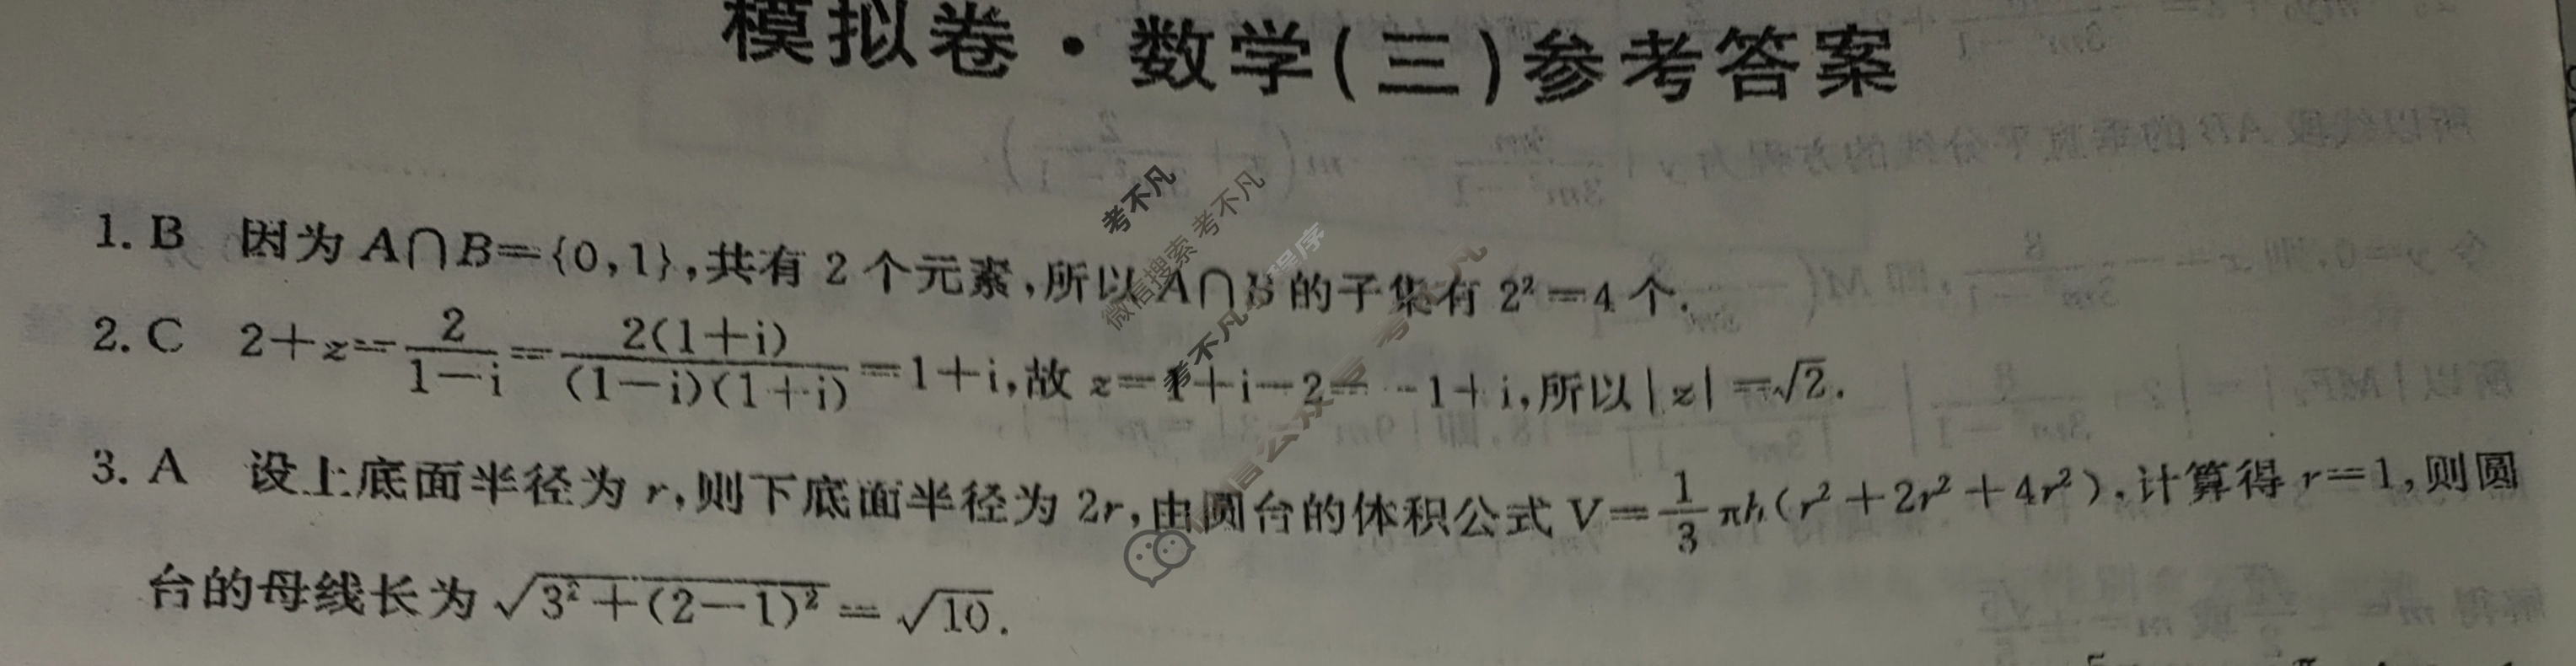 模拟卷·数学(三)参考答案
1. B 因为 A∩B={0,1},共有 2 个元素,所以 A∩B 的子集有 2²=4 个.
2. C 2+z=\frac{2}{1-i}=\frac{2(1+i)}{(1-i)(1+i)}=1+i,故 z=1+i-2=-1+i,所以|z|=√2.
3. A 设上底面半径为 r,则下底面半径为 2r,由圆台的体积公式 V=\frac{1}{3}πh(r²+2r²+4r²),计算得 r=1,则圆
台的母线长为 \sqrt{3²+(2-1)²}=\sqrt{10}.
考不凡
微信搜索 考不凡
考不凡